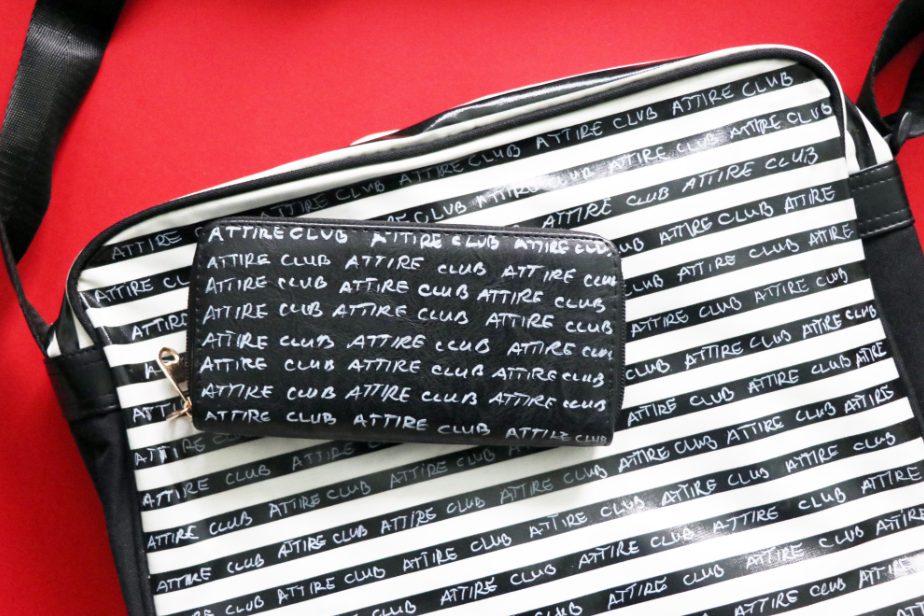 ATTIRE CLUB ATTIRE CLUB ATTIRE CLUB ATTIRE CLUB
ATTIRE CLUB ATTIRE CLUB ATTIRE CLUB
ATTIRE CLUB ATTIRE CLUB
ATTIRE CLUB ATTIRE
ATTIRE CLUB ATTIRE
ATTIRE CLUB ATTIRE CLUB
ATTIRE CLUB ATTIRE CLUB
ATTIRE CLUB ATTIRE CLUB ATTIRE
ATTIRE CLUB ATTIRE CLUB ATTIRE
ATTIRE CLUB ATTIRE CLUB ATTIRE CLUB ATTIRE CLUB ATTIRE CLUB
ATTIRE CLUB ATTIRE CLUB ATTIRE CLUB ATTIRE CLUB ATTIRE CLUB
ATTIRE CLUB ATTIRE CLUB ATTIRE CLUB ATTIRE CLUB ATTIRE
ATTIRE CLUB ATTIRE CLUB ATTIRE CLUB ATTIRE
ATTIRE CLUB ATTIRE CLUB ATTIRE CLUB
ATTIRE CLUB ATTIRE CLUB ATTIRE CLUB
ATTIRE CLUB ATTIRE CLUB ATTIRE CLUB
ATTIRE CLUB ATTIRE CLUB ATTIRE CLUB
ATTIRE CLUB ATTIRE CLUB ATTIRE CLUB
ATTIRE CLUB ATTIRE CLUB ATTIRE CLUB
ATTIRE CLUB ATTIRE CLUB ATTIRE CLUB
ATTIRE CLUB ATTIRE CLUB ATTIRE CLUB